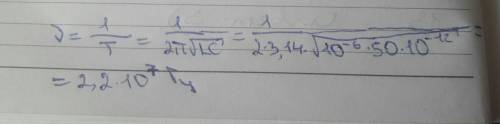 ν = 1/T = 1/2π√LC = 1/2·3,14·√10⁻⁶·50·10⁻¹² =
= 2,2·10⁷ Гц